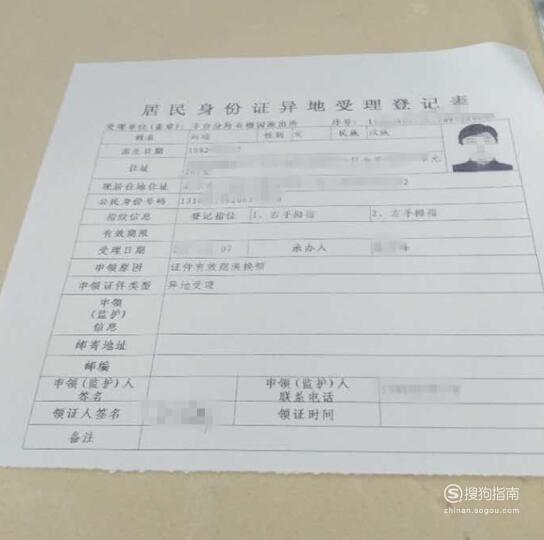 居民身份证异地受理登记表
受理单位(盖章): 丰台分局 派出所 序号: 1
姓名 性别 女 民族 汉族
出生日期 1982
住址 单元
现居住地住址 02
公民身份号码 131
指纹信息 登记指位 1、右手拇指 2、左手拇指
有效期限
受理日期 07 承办人
申领原因 证件有效期满换领
申领证件类型 异地受理
申领(监护)信息
邮寄地址
邮编
申领(监护)人签名 申领(监护)人联系电话
领证人签名 领证时间
备注
搜狗指南
zhinan.sogou.com